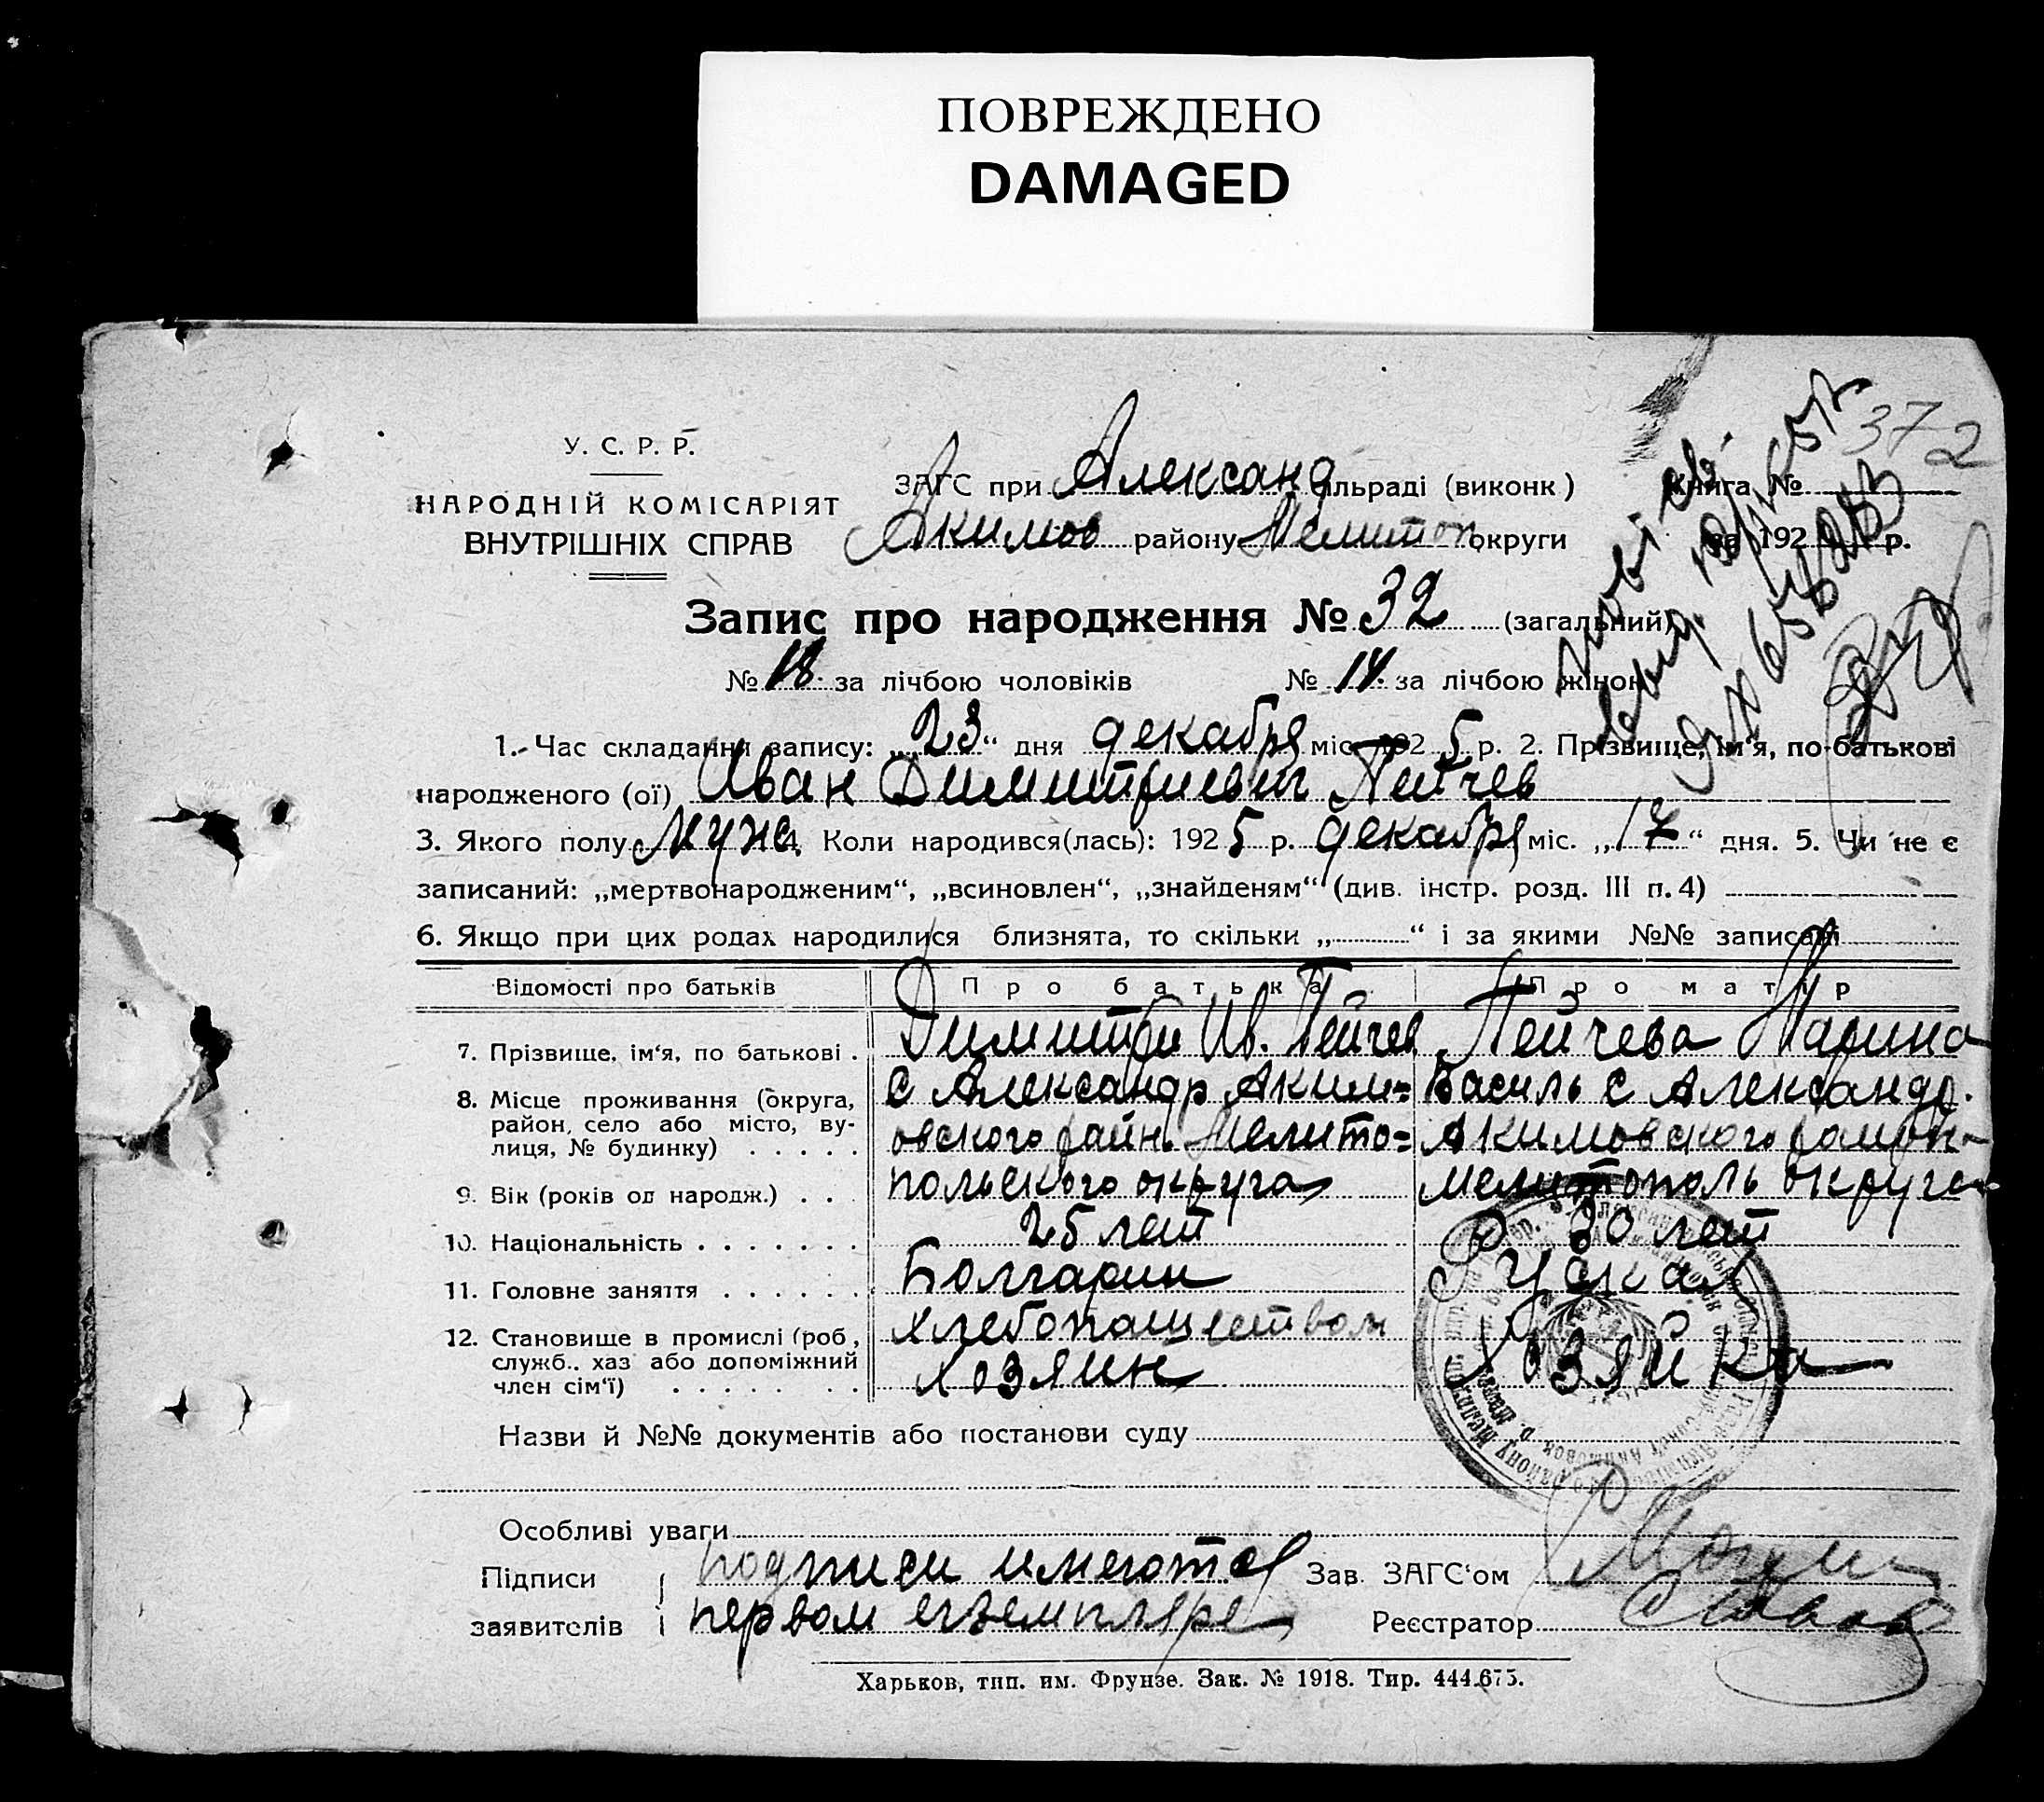 ПОВРЕЖДЕНО
DAMAGED
У. С. Р. Р.
НАРОДНІЙ КОМІСАРІЯТ
ВНУТРІШНІХ СПРАВ
ЗАГС при Александ сільраді (виконк)
Акимов району Мелитоп округи
Книга №
за 192 р.
372
Запис про народження № 32 (загальний)
№ 18. за лічбою чоловіків № 14. за лічбою жінок
1. Час складання запису: „23“ дня декабря міс. 1925 р. 2. Прізвище, ім'я, по-батькові
народженого (ої) Иван Димитриевич Пейчев
3. Якого полу Муж. 4. Коли народився(лась): 1925 р. декабря міс. „17“ дня. 5. Чи не є
записаний: „мертвонародженим“, „всиновлен“, „знайденям“ (див. інстр. розд. III п. 4)
6. Якщо при цих родах народилися близнята, то скільки „ “ і за якими №№ записані
Відомості про батьків Про батька Про матір
7. Прізвище, ім'я, по батькові . Димитрий Ив. Пейчев Пейчева Марина
8. Місце проживання (округа, район, село або місто, ву-
лиця, № будинку) . . . . .
с Александр Аким=
овского район. Мелито=
польского округа
Василь с Александр.
Акимовского район
Мелитополь округа
9. Вік (років од народж.) . . . 25 лет 30 лет
10. Національність . . . . . . . Болгарин Руская
11. Головне заняття . . . . . . хлебопашеством
12. Становище в промислі (роб,
служб.. хаз або допоміжний
член сім'ї) . . . . . . .
хозяин хозяйка
Назви й №№ документів або постанови суду
Особливі уваги
Підписи
заявителів
подписи имеются
первом екземпляре
Зав. ЗАГС'ом
Реєстратор
Харьков, тип. им. Фрунзе. Зак. № 1918. Тир. 444.675.